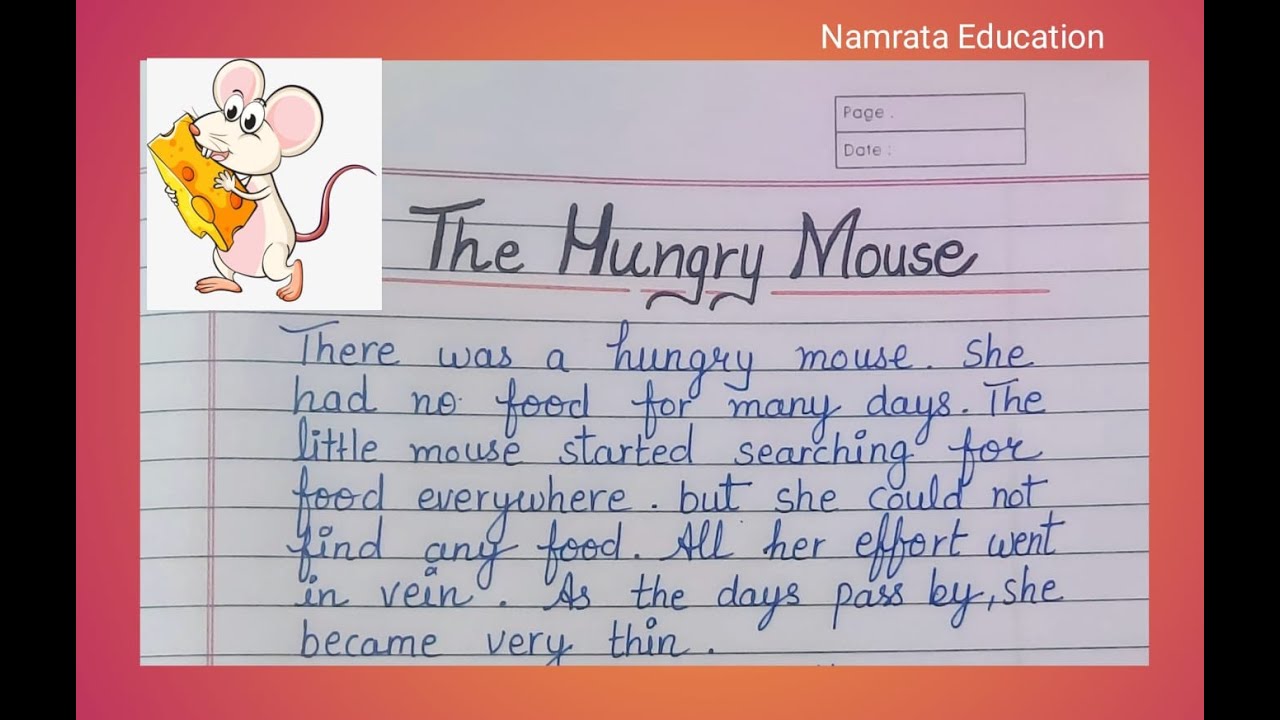 Namrata Education
Page :
Date :
The Hungry Mouse
There was a hungry mouse. She
had no food for many days. The
little mouse started searching for
food everywhere. but she could not
find any food. All her effort went
in vein. As the days pass by, she
became very thin.